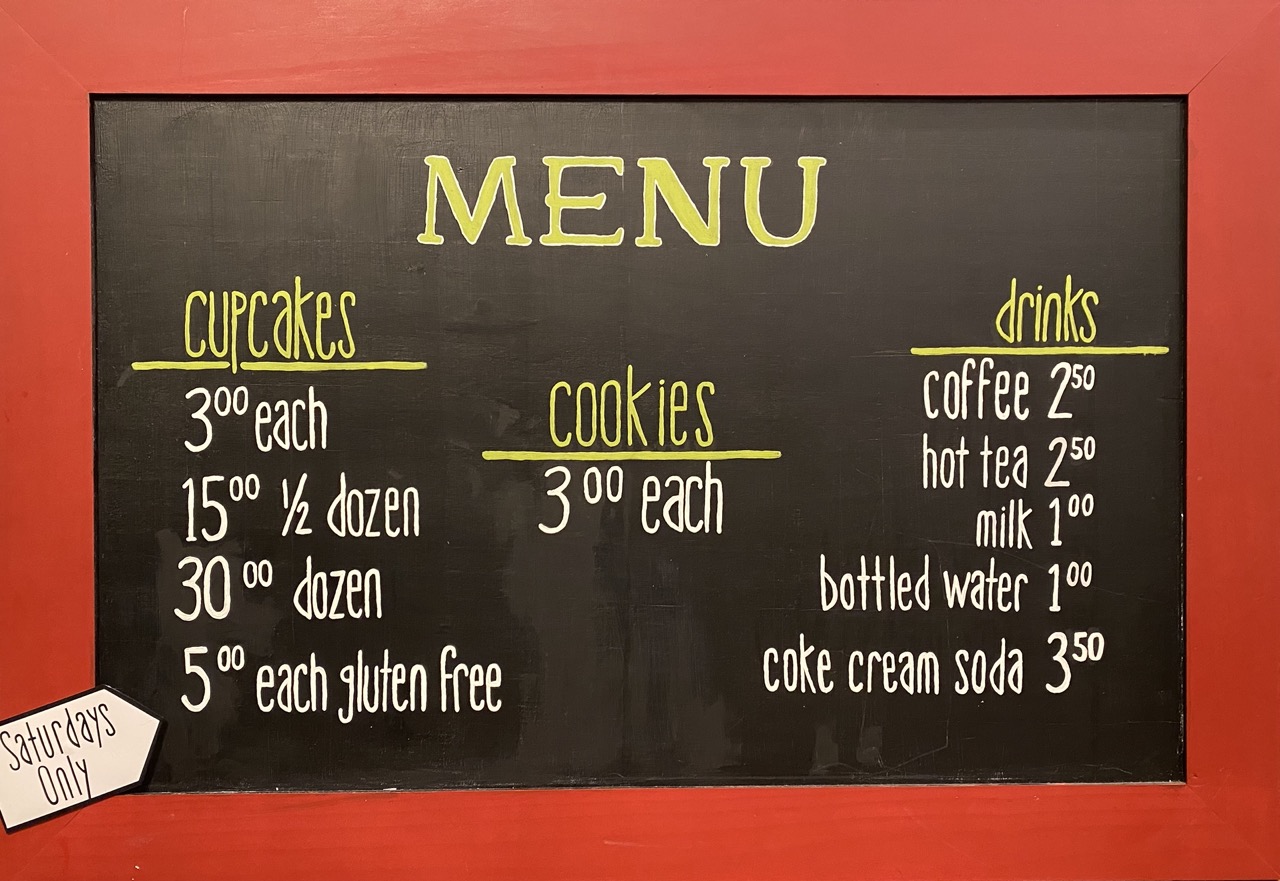 MENU
cupcakes
3⁰⁰ each
15⁰⁰ ½ dozen
30⁰⁰ dozen
5⁰⁰ each gluten free
Saturdays
Only
cookies
3⁰⁰ each
drinks
coffee 2⁵⁰
hot tea 2⁵⁰
milk 1⁰⁰
bottled water 1⁰⁰
coke cream soda 3⁵⁰